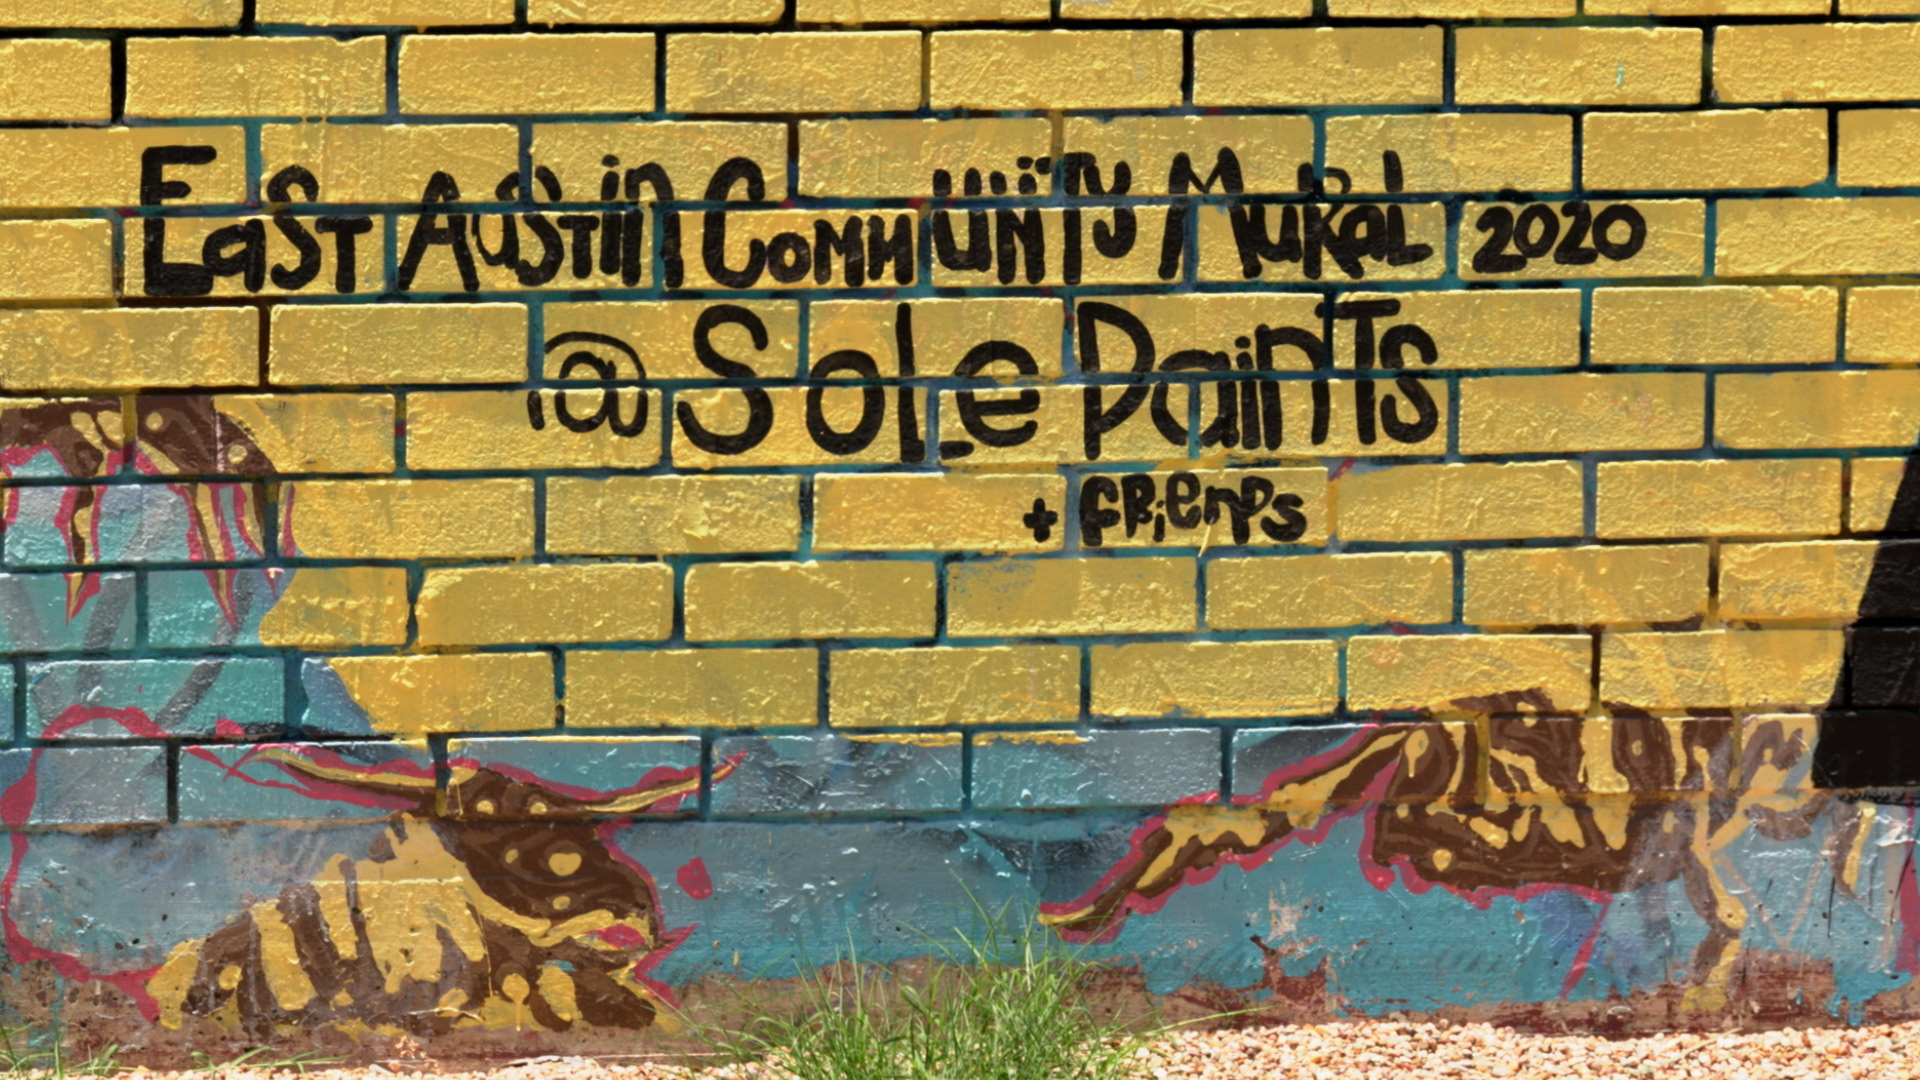 East Austin Community Mural 2020
@SolePaints
+ Friends